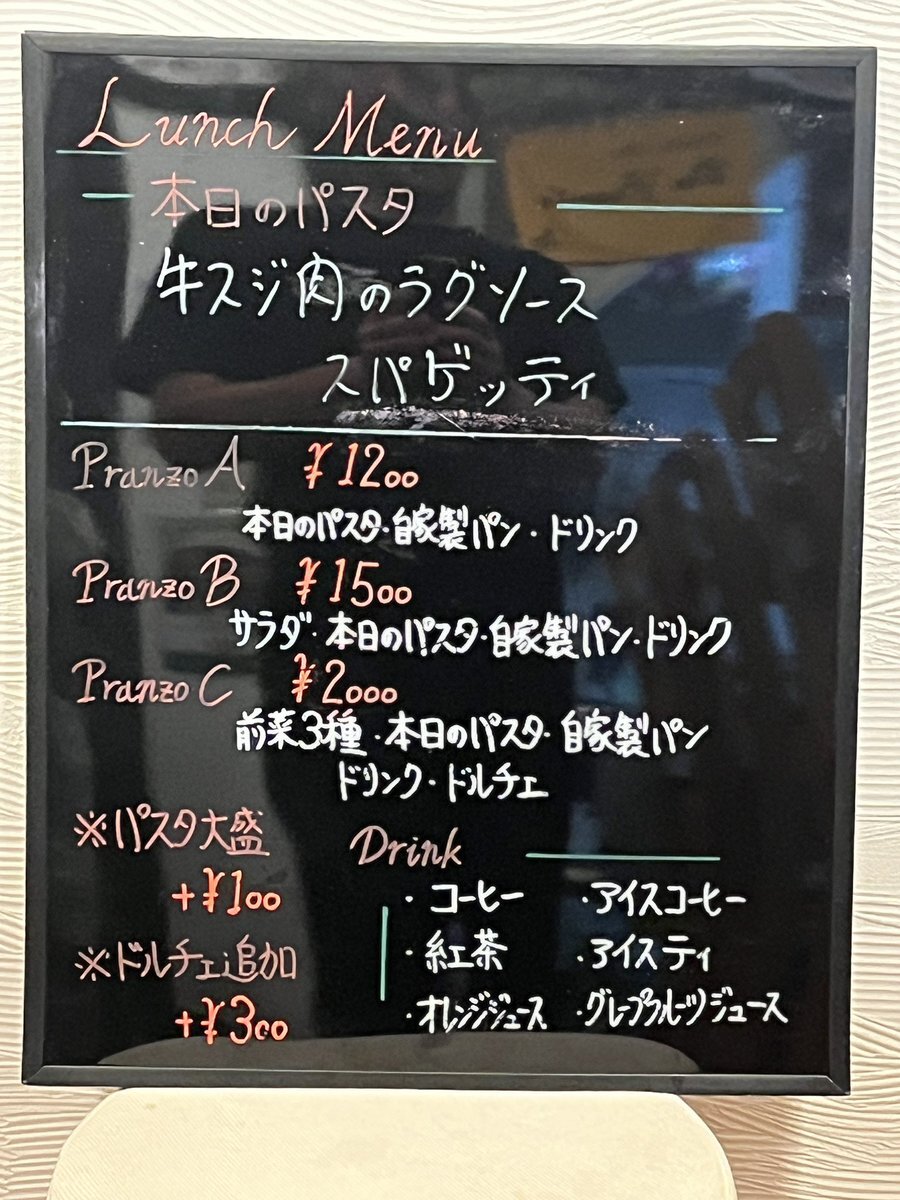 Lunch Menu
本日のパスタ
牛スジ肉のラグソース
スパゲッティ
Pranzo A ¥1200
本日のパスタ・自家製パン・ドリンク
Pranzo B ¥1500
サラダ・本日のパスタ・自家製パン・ドリンク
Pranzo C ¥2000
前菜3種・本日のパスタ・自家製パン
ドリンク・ドルチェ
※パスタ大盛
+¥100
※ドルチェ追加
+¥300
Drink
・コーヒー ・アイスコーヒー
・紅茶 ・アイスティ
・オレンジジュース ・グレープフルーツジュース